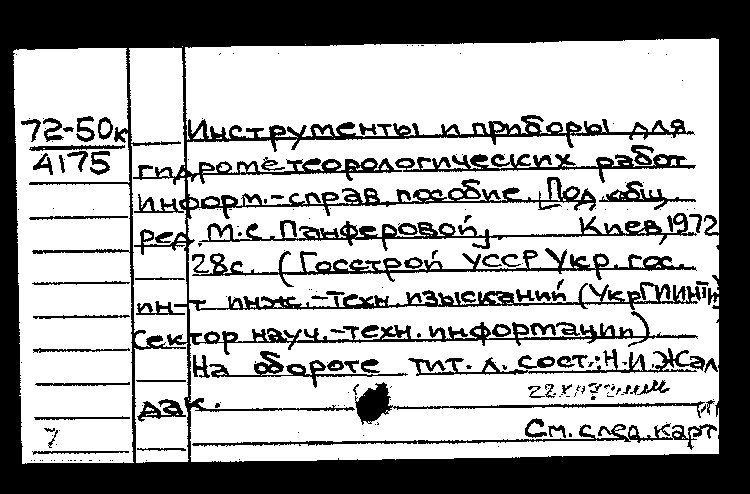 72-50к
4175
Инструменты и приборы для
гидрометеорологических работ
информ.-справ. пособие. [Под общ.
ред. М.С. Панферовой]. Киев, 1972
28с. (Госстрой УССР Укр. гос.
ин-т инж.-техн. изысканий (УкрГИИНТИЗ)
Сектор науч.-техн. информации).
На обороте тит. л. сост.: Н.И. Жал
дак.
7
См. след. карт.